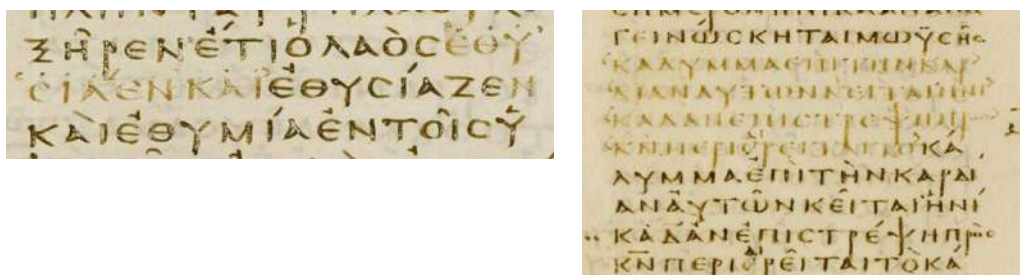 ξῆρενἔτιὁλαὸϲἐθυ
ϲίαενκαιἐθυϲίαζεν
καὶἐθυμίαἐντοῖϲὑ
γεινώϲκηταιμωϋϲῆϲ
καλυμμαεπιτηνκαρ
διαναυτωνκειταιηνι
καδανεπιϲτρεψηπρ
κ̅ν̅περιαιρειταιτοκά
λυμμαἐπὶτὴνκαρδι
αναὐτῶνκεῖταιἡνί
καδἀνἐπιϲτρέψηπρὸϲ
κ̅ν̅περιαιρεῖταιτὸκά